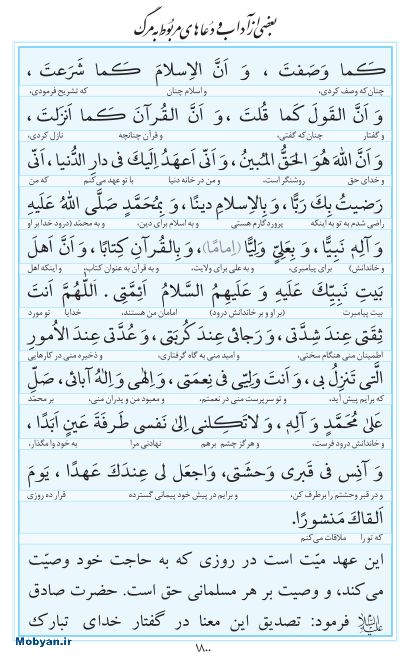 بعضی از آداب و دعاهای مربوط به مرگ
كَما وَصَفتَ ، وَ اَنَّ الاِسلامَ كَما شَرَعتَ ،
چنان‌که وصف کردی، و اسلام چنان که تشریح فرمودی،
وَ اَنَّ القَولَ كَما قُلتَ ، وَ اَنَّ القُرآنَ كَما اَنزَلتَ ،
و گفتار چنان‌که گفتی، و قرآن چنانچه نازل کردی،
وَ اَنَّ اللهَ هُوَ الحَقُّ المُبينُ ، وَ اَنّی اَعهَدُ اِلَيكَ فی دارِ الدُّنيا ، اَنّی
و خدای حق روشنگر است، و من در خانه دنیا با تو عهد می‌کنم که من
رَضيتُ بِكَ رَبًّا ، وَ بِالاِسلامِ دينًا ، وَ بِمُحَمَّدٍ صَلَّی اللهُ عَلَيهِ
راضی شدم به تو به اینکه پروردگارم هستی و به اسلام برای دین، و به محمّد (درود خدا بر او
وَ آلِهِ نَبِيًّا ، وَ بِعَلِیٍّ وَلِيًّا (اِمامًا) ، وَ بِالقُرآنِ كِتابًا ، وَ اَنَّ اَهلَ
و خاندانش) برای پیامبری، و به علی برای ولایت، و به قرآن به عنوان کتاب، و اینکه اهل
بَيتِ نَبِيِّكَ عَلَيهِ وَ عَلَيهِمُ السَّلامُ اَئِمَّتی . اَللّٰهُمَّ اَنتَ
بیت پیامبرت (بر او و بر خاندانش درود) امامان من هستند، خدایا تو مورد
ثِقَتی عِندَ شِدَّتی ، وَ رَجائی عِندَ كُربَتی ، وَ عُدَّتی عِندَ الاُمورِ
اطمینان منی هنگام سختی، و امید منی به گاه گرفتاری، و ذخیره منی در کارهایی
الَّتی تَنزِلُ بی ، وَ اَنتَ وَلِيّی فی نِعمَتی ، وَ اِلٰهی وَ اِلٰهُ آبائی ، صَلِّ
که برایم پیش آید، و تو سرپرست منی در نعمتم، و معبود من و پدران منی، بر محمّد
عَلیٰ مُحَمَّدٍ وَ آلِهِ ، وَ لاتَكِلنی اِلیٰ نَفسی طَرفَةَ عَينٍ اَبَدًا ،
و خاندانش درود فرست، و هرگز چشم برهم نهادنی مرا به خود وا مگذار،
وَ آنِس فی قَبری وَحشَتی ، وَاجعَل لی عِندَكَ عَهدًا ، يَومَ
و در قبر وحشتم را برطرف کن، و برایم در پیش خود پیمانی گسترده قرار ده روزی
اَلقاكَ مَنشورًا.
که تو را ملاقات می‌کنم
این عهد میّت است در روزی که به حاجت خود وصیّت
می‌کند، و وصیت بر هر مسلمانی حق است. حضرت صادق
علیه‌السلام فرمود: تصدیق این معنا در گفتار خدای تبارک
Mobyan.ir
۱۸۰۰